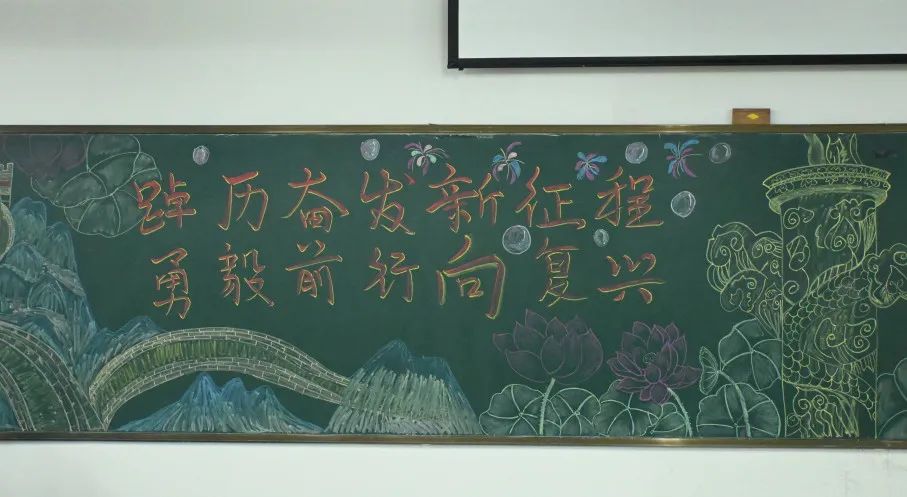 踔历奋发新征程
勇毅前行向复兴